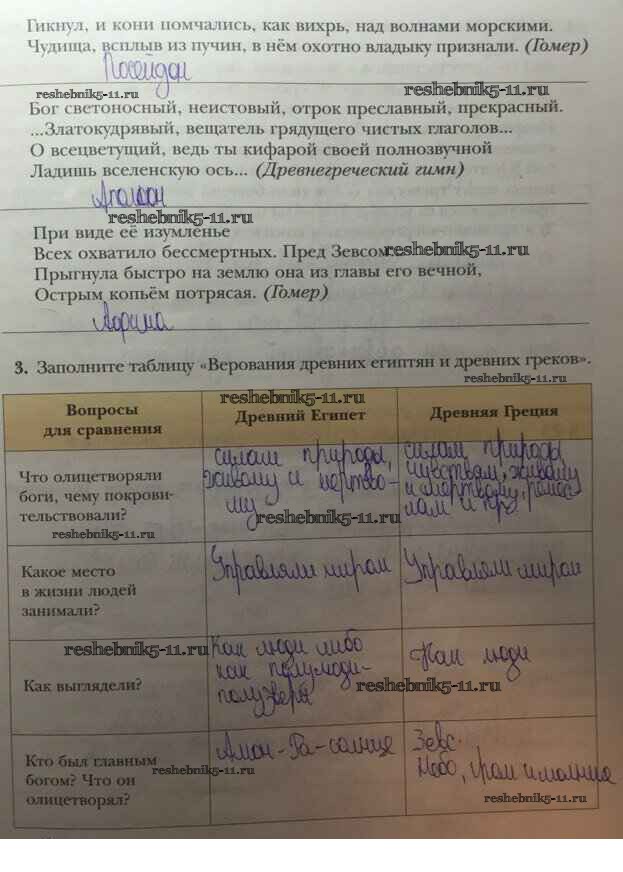 Гикнул, и кони помчались, как вихрь, над волнами морскими.
Чудища, всплыв из пучин, в нём охотно владыку признали. (Гомер)
Посейдон
reshebnik5-11.ru
reshebnik5-11.ru
Бог светоносный, неистовый, отрок преславный, прекрасный.
...Златокудрявый, вещатель грядущего чистых глаголов...
О всецветущий, ведь ты кифарой своей полнозвучной
Ладишь вселенскую ось... (Древнегреческий гимн)
Аполлон
reshebnik5-11.ru
При виде её изумленье
Всех охватило бессмертных. Пред Зевсом
reshebnik5-11.ru
Прыгнула быстро на землю она из главы его вечной,
Острым копьём потрясая. (Гомер)
Афина
reshebnik5-11.ru
3. Заполните таблицу «Верования древних египтян и древних греков».
reshebnik5-11.ru
reshebnik5-11.ru
Вопросы
для сравнения
Древний Египет
Древняя Греция
Что олицетворяли
боги, чему покрови-
тельствовали?
reshebnik5-11.ru
силам природы,
живому и мертво-
му
reshebnik5-11.ru
силам природы,
чувствам, живому
и мертвому, ремес
лам и пр.
Какое место
в жизни людей
занимали?
Управляли миром
Управляли миром
reshebnik5-11.ru
Как выглядели?
Как люди либо
как полулюди-
полузвери
Как люди
reshebnik5-11.ru
Кто был главным
богом? Что он
олицетворял?
reshebnik5-11.ru
Амон-Ра-солнце
Зевс.
Небо, гром и молния
reshebnik5-11.ru